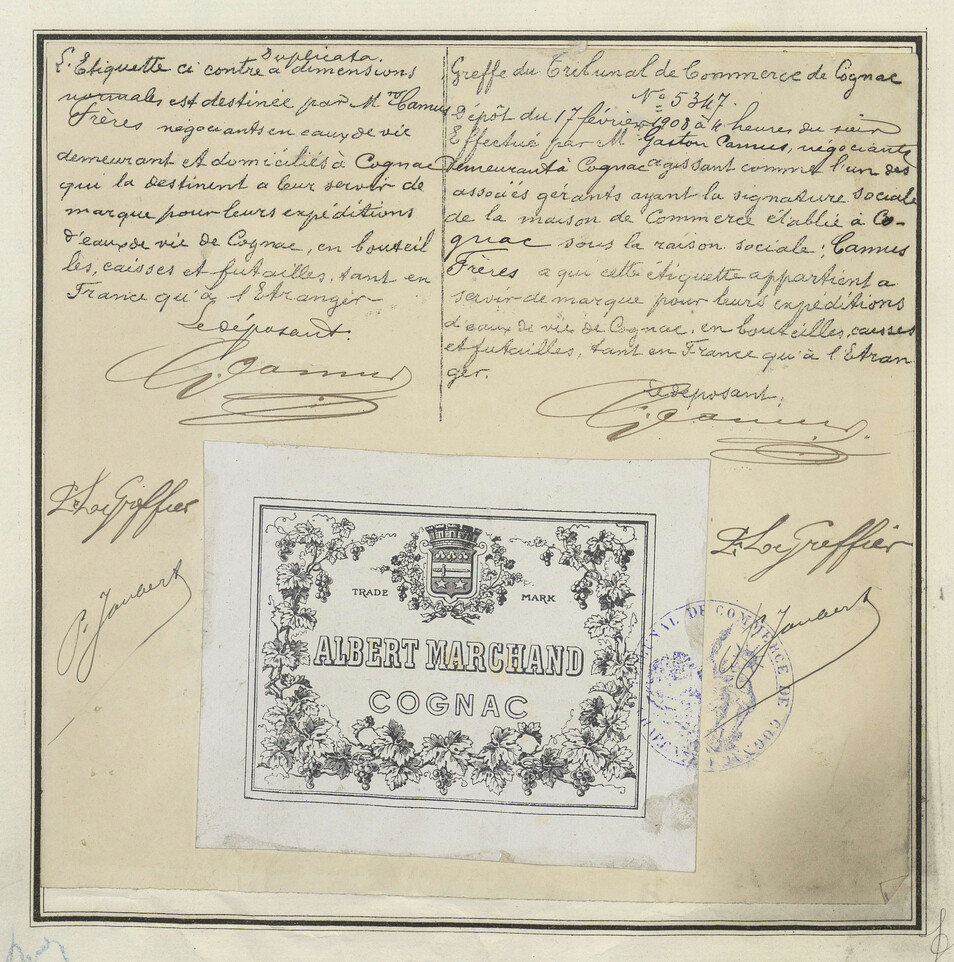 Duplicata.
L'Etiquette ci contre a dimensions
normales est destinée par M.rs Camus
Frères négociants en eaux de vie
demeurant et domiciliés à Cognac
qui la destinent a leur servir de
marque pour leurs expéditions
d'eaux de vie de Cognac, en bouteil
les, caisses et futailles, tant en
France qu'à l'Etranger
Le déposant.
G. Camus
Greffe du Tribunal de Commerce de Cognac
No 5347.
Dépôt du 17 février 1908 à 4 heures du soir
Effectué par M. Gaston Camus, négociants
demeurant à Cognac agissant comme l'un des
associés gérants ayant la signature sociale
de la maison de Commerce etablie à Co-
gnac sous la raison sociale; Camus
Frères a qui cette étiquette appartient a
servir de marque pour leurs expéditions
d'eaux de vie de Cognac, en bouteilles, caisses
et futailles, tant en France qu'à l'Etran
ger.
Le déposant;
G. Camus
Le Greffier
P. Jaubert
TRADE MARK
ALBERT MARCHAND
COGNAC
Le Greffier
Jaubert
TRIBUNAL DE COMMERCE DE COGNAC